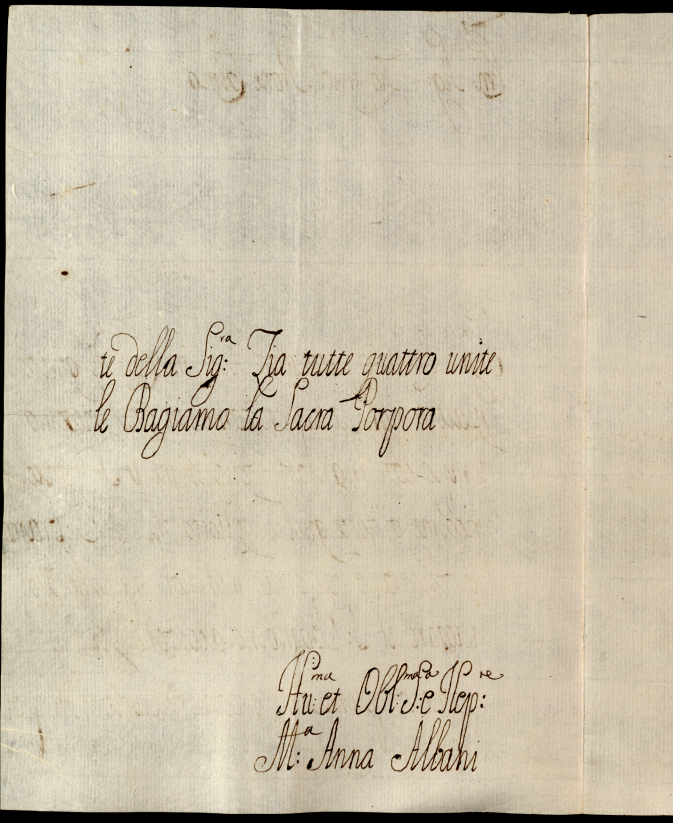 te della Sig:ra Zia tutte quattro unite
le Bagiamo la Sacra Porpora
Hu:ma et Obl:ma S:a e Nep:re
M:a Anna Albani